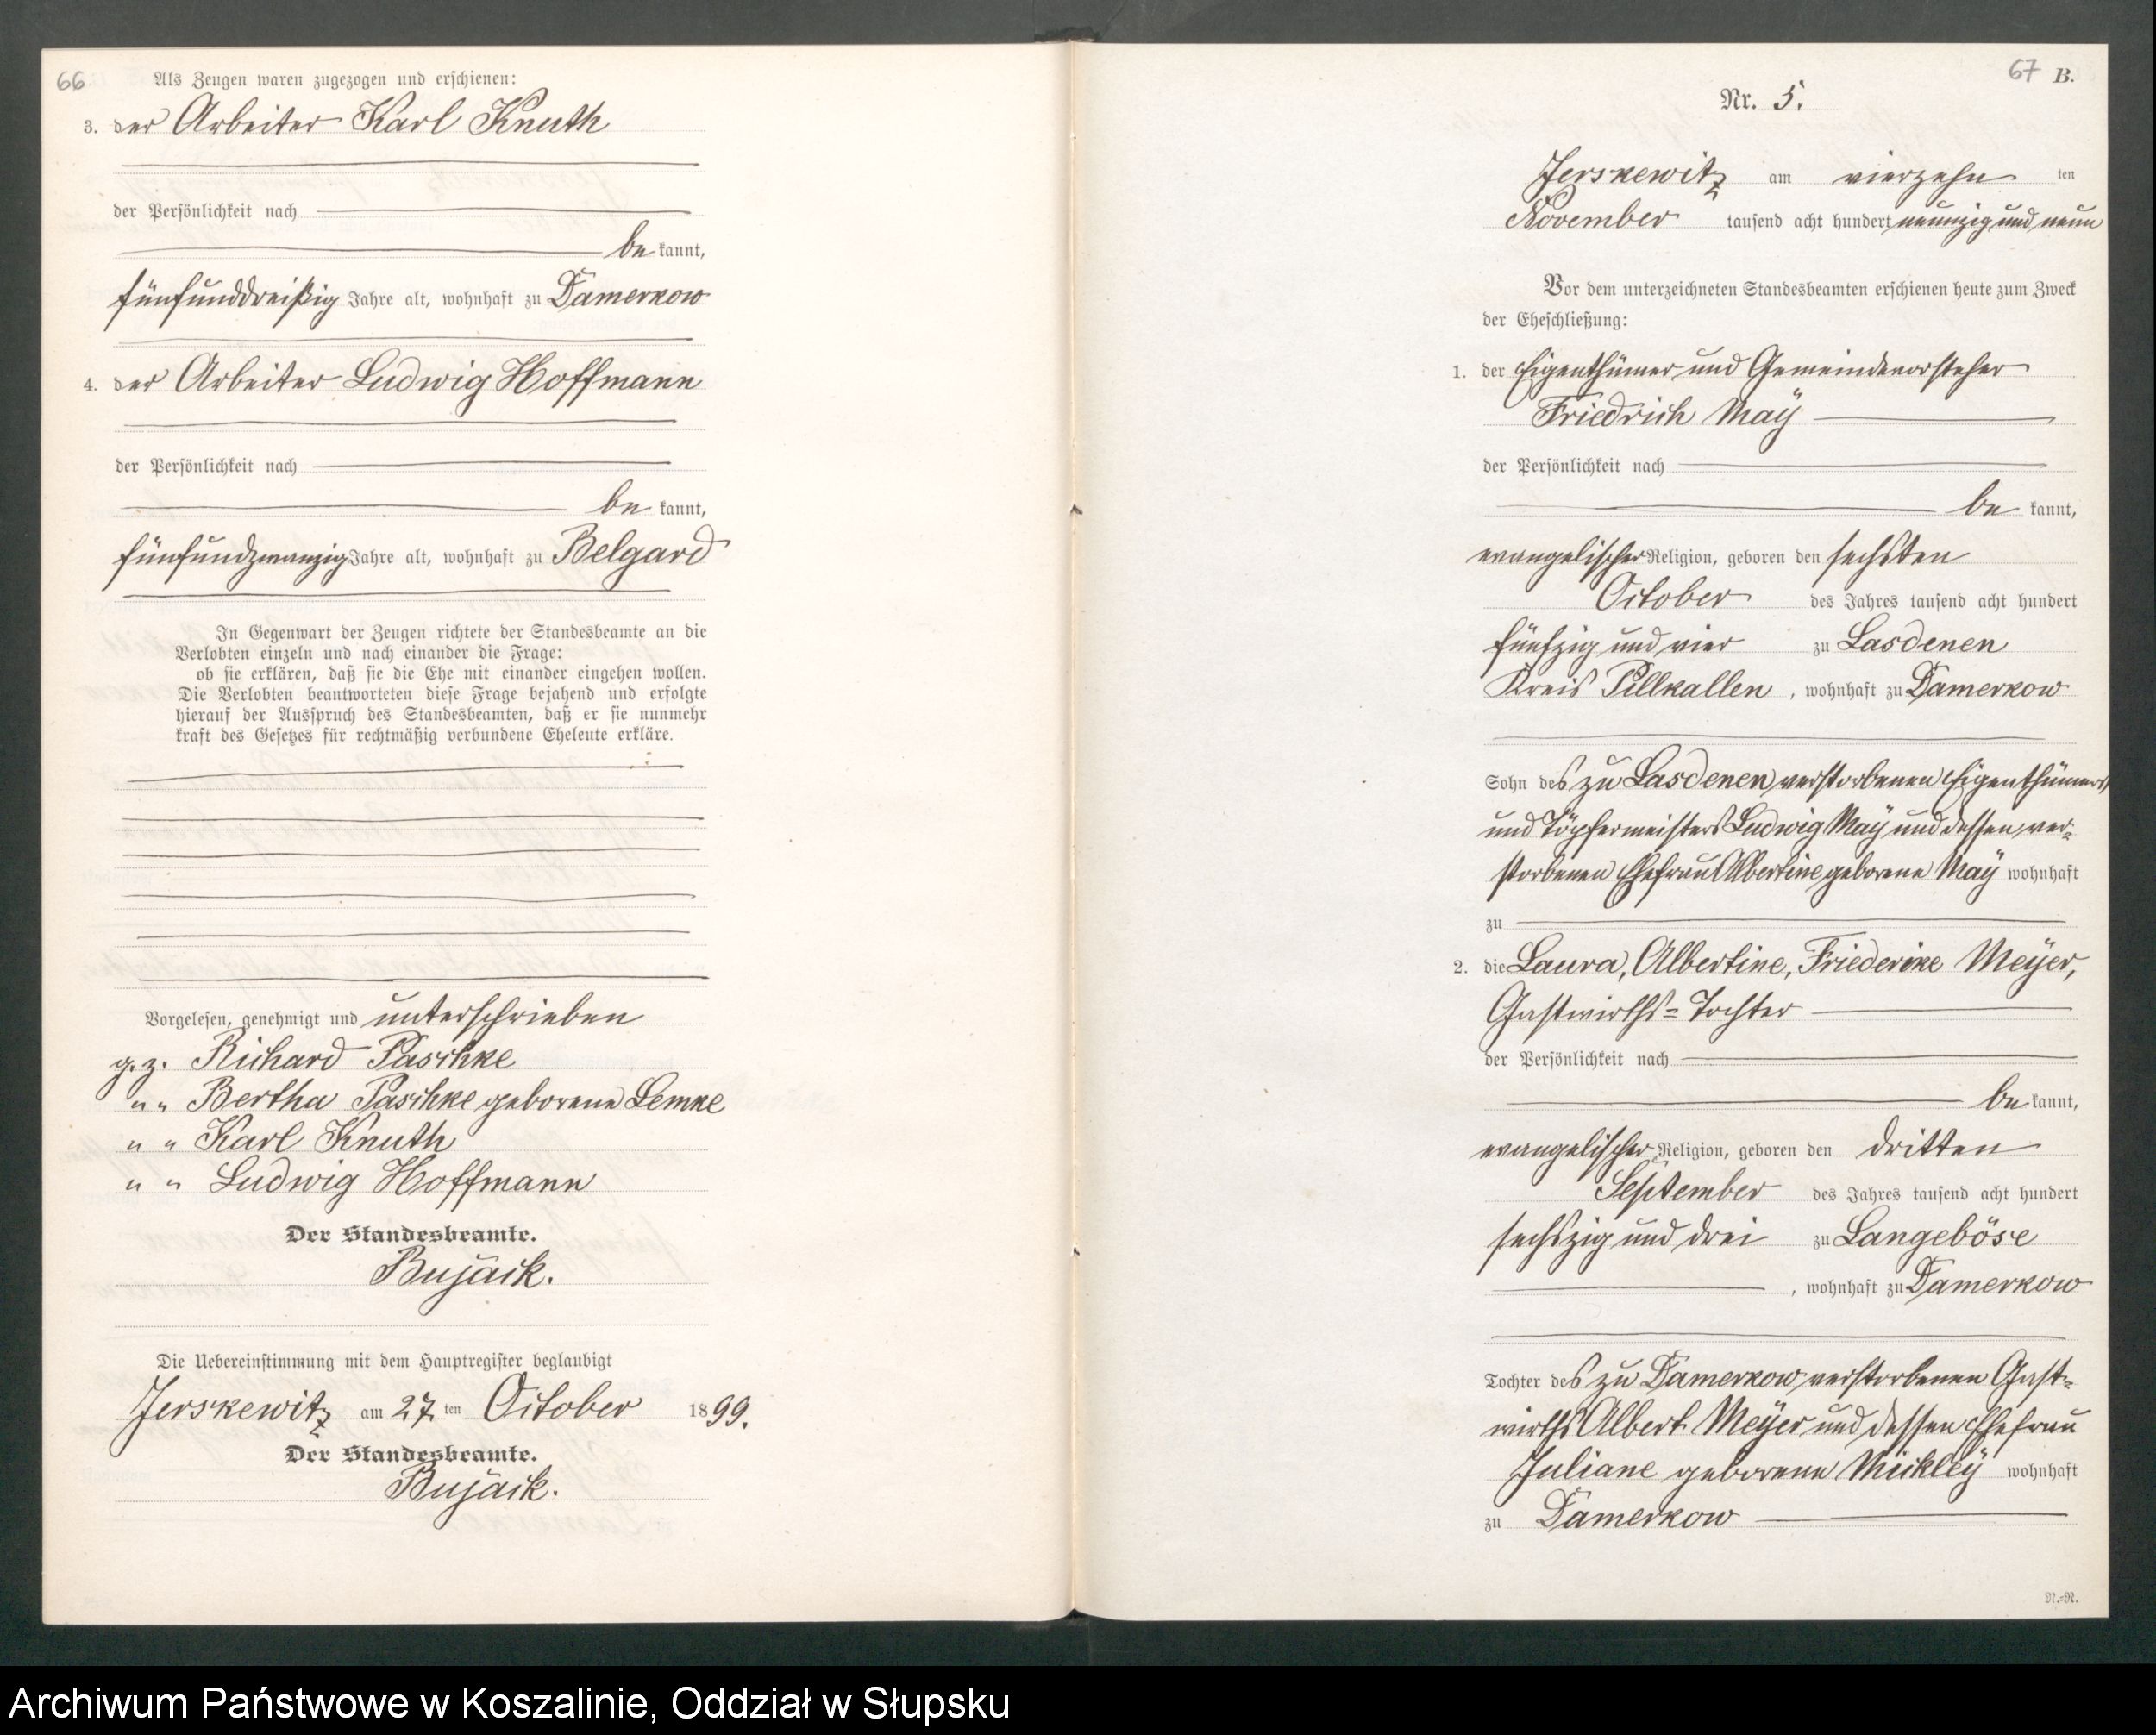 66
Als Zeugen waren zugezogen und erschienen:
3. der Arbeiter Karl Knuth
der Persönlichkeit nach
be kannt,
fünfunddreißig Jahre alt, wohnhaft zu Damerkow
4. der Arbeiter Ludwig Hoffmann
der Persönlichkeit nach
be kannt,
fünfundzwanzig Jahre alt, wohnhaft zu Belgard
In Gegenwart der Zeugen richtete der Standesbeamte an die
Verlobten einzeln und nach einander die Frage:
ob sie erklären, daß sie die Ehe mit einander eingehen wollen.
Die Verlobten beantworteten diese Frage bejahend und erfolgte
hierauf der Ausspruch des Standesbeamten, daß er sie nunmehr
kraft des Gesetzes für rechtmäßig verbundene Eheleute erkläre.
Vorgelesen, genehmigt und unterschrieben
g. z. Richard Paschke
" " Bertha Paschke geborene Lemke
" " Karl Knuth
" " Ludwig Hoffmann
Der Standesbeamte.
Bujack.
Die Uebereinstimmung mit dem Hauptregister beglaubigt
Jerskewitz am 27 ten October 1899.
Der Standesbeamte.
Bujack.
67 B.
Nr. 5.
Jerskewitz am vierzehn ten
November tausend acht hundert neunzig und neun
Vor dem unterzeichneten Standesbeamten erschienen heute zum Zweck
der Eheschließung:
1. der Eigenthümer und Gemeindevorsteher
Friedrich Maÿ
der Persönlichkeit nach
be kannt,
evangelischer Religion, geboren den sechsten
October des Jahres tausend acht hundert
fünfzig und vier zu Lasdenen
Kreis Pillkallen, wohnhaft zu Damerkow
Sohn des zu Lasdenen verstorbenen Eigenthümers
und Töpfermeisters Ludwig Maÿ und dessen ver-
storbenen Ehefrau Albertine geborene Maÿ wohnhaft
zu
2. die Laura, Albertine, Friederike Meÿer,
Gastwirths-Tochter
der Persönlichkeit nach
be kannt,
evangelischer Religion, geboren den dritten
September des Jahres tausend acht hundert
sechszig und drei zu Langeböse
, wohnhaft zu Damerkow
Tochter des zu Damerkow verstorbenen Gast-
wirths Albert Meÿer und dessen Ehefrau
Juliane geborene Mickleÿ wohnhaft
zu Damerkow
N.=N.
Archiwum Państwowe w Koszalinie, Oddział w Słupsku